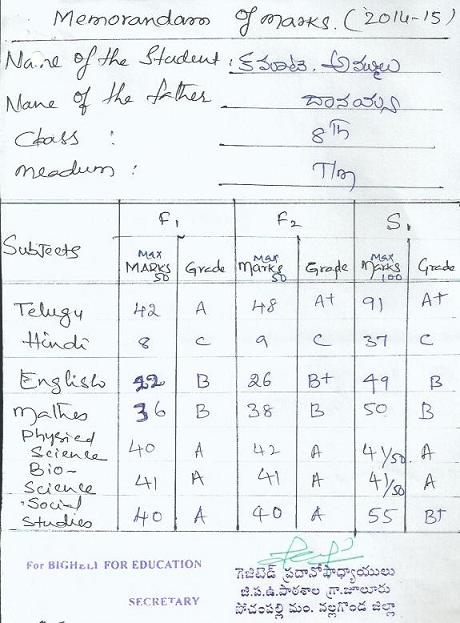 Memorandam of marks. (2014-15)
Name of the Student : కమటం. అమ్ములు
Name of the father దానయ్య
Class : 8Th
meadum : T/m
F1 F2 S1
Subjects MAX MARKS 50 Grade Max Marks 50 Grade Max Marks 100 Grade
Telugu 42 A 48 A+ 91 A+
Hindi 8 C 9 C 37 C
English 22 B 26 B+ 49 B
Mathes 36 B 38 B 50 B
Physied Science 40 A 42 A 41/50 A
Bio-Science 41 A 41 A 41/50 A
Social Studies 40 A 40 A 55 B+
For BIGHELP FOR EDUCATION
SECRETARY
గెజిటెడ్ ప్రదానోపాధ్యాయులు
జి.ప.ఉ.పాఠశాల గ్రా.జూలూరు
పోచంపల్లి మం. నల్లగొండ జిల్లా